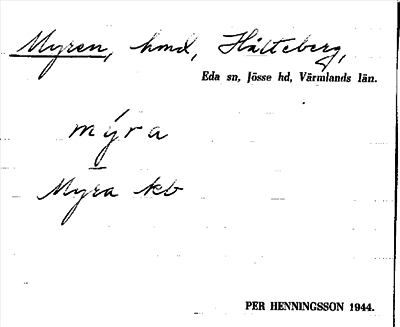 Myren, hmd, Hålteberg,
Eda sn, Jösse hd, Värmlands län.
mýra
Myra kb
PER HENNINGSSON 1944.